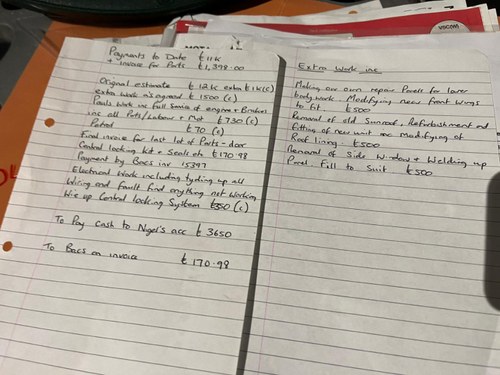 Payments to Date £11k
+ invoice for Parts £1,398.00
Original estimate £12k extra £1k(c)
extra work as agreed £1500 (c)
Pauls Work inc full Service of engine + Brakes
inc all Parts/Labour + Mot £730 (c)
Petrol £70 (c)
Final invoice for last lot of Parts - door
Central locking kit + Seals etc £170.98
Payment by Bacs inv 15397
Electrical Work including tyding up all
Wiring and fault find anything not working
Wire up Central locking System £350 (c)
To Pay cash to Nigel's acc £3650
To Bacs on invoice £170.98
Extra Work inc
Making our own repair Panels for lower
bodywork. Modifying new front Wings
to fit £500
Removal of old Sunroof, Refurbishment and
fitting of new unit inc modifying of
Roof lining £500
Removal of Side Window + Welding up
Panel fill to Suit £500